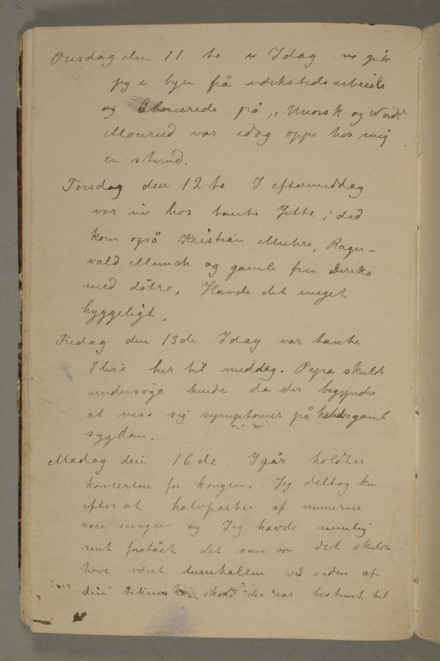 Onsdag den 11 te Idag gik
jeg i byen frå værkstedsarbeide
og abonerede på „Unorsk og
Mourud var idag oppe hos mig
en stund.
Torsdag den 12 te I eftermiddag
var vi hos tante Jette, ded
kom også Kristian Munhe, Ragn-
vald Munch og gamle fru Diriks
med døtre. Havde det meget
hyggeligt.
Fredag den 13 de Idag var tante
Elise her til middag. Papa skulde
undersøge hende da der begyndte
at vise sig symptomer på
sygdom.
Mandag den 16 de Igår holdtes
koncerten for kongen. Jeg deltog kun
efter at halvparten af numerne
vare sungne og Jeg havde nemlig
rent forstået det som om det skulde
have været turnhallen ved siden af
der var bestemt til